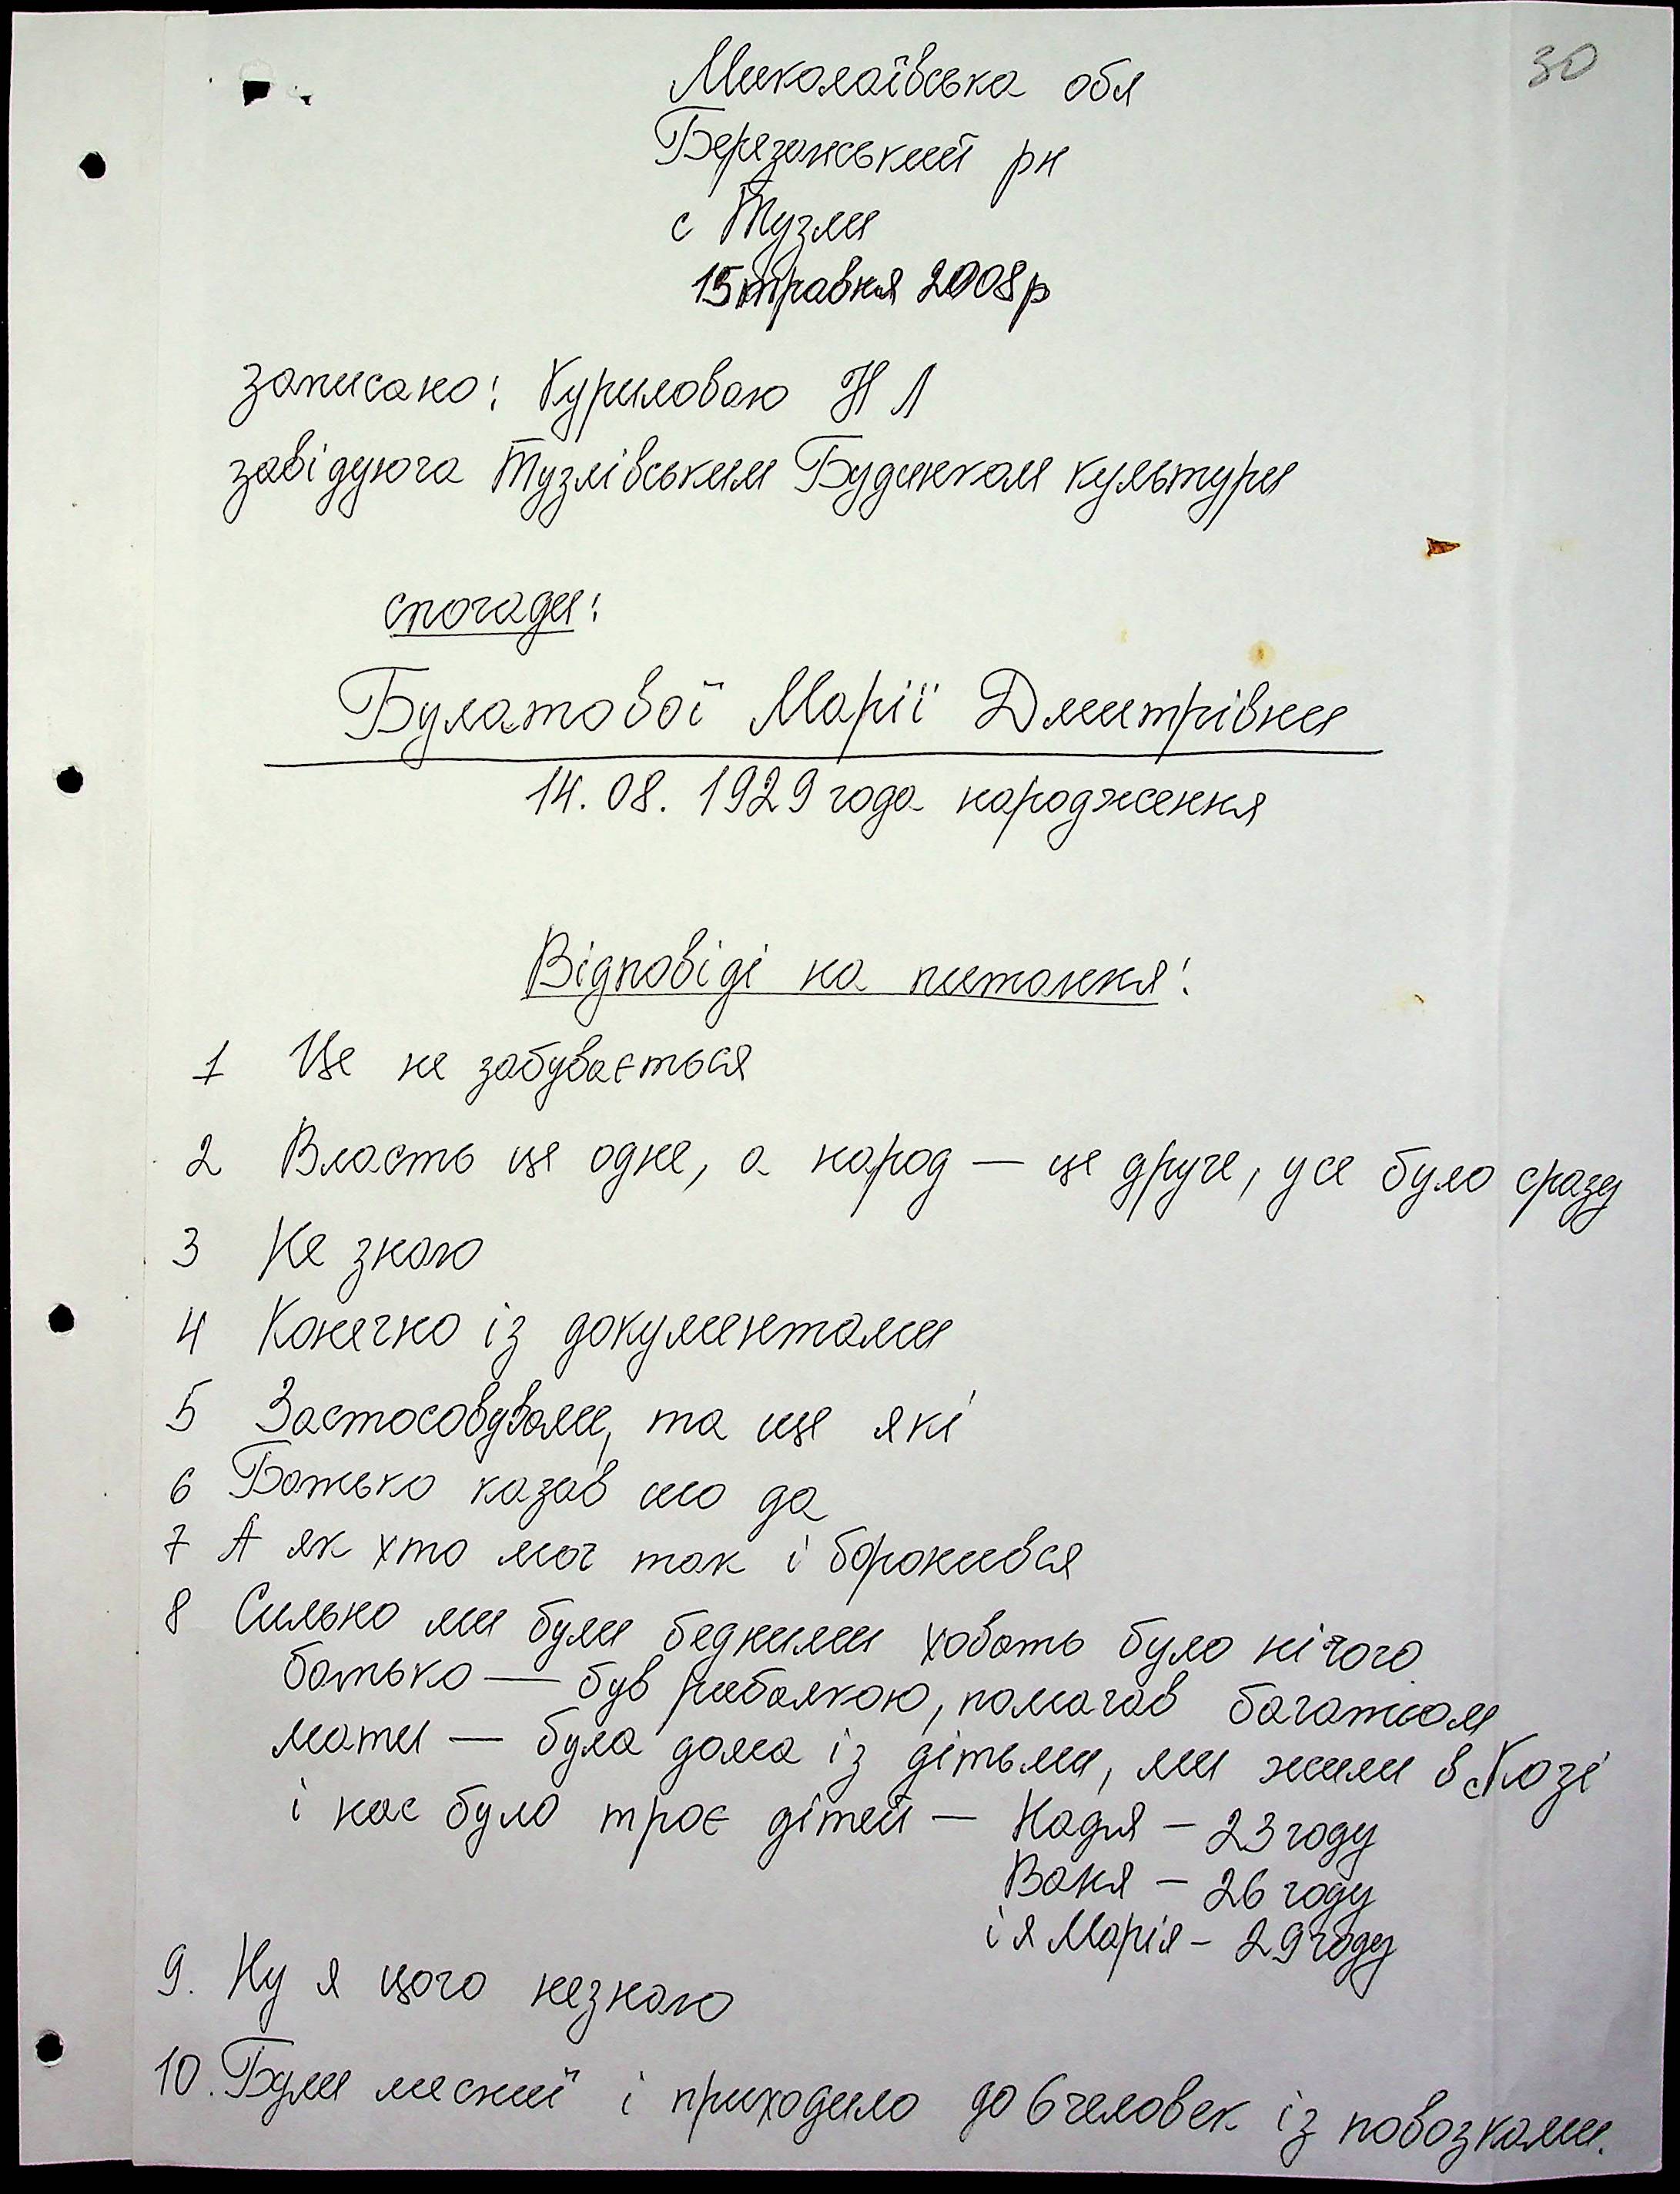 30
Миколаївська обл
Березанський рн
с Тузли
15 травня 2008р
записано: Куриловою Н Л
завідуюча Тузлівським Будинком культури
спогади:
Булатової Марії Дмитрівни
14. 08. 1929 года народження
Відповіді на питання:
1 Це не забувається
2 Власть це одне, а народ — це друге, усе було сразу
3 Не знаю
4 Конечно із документами
5 Застосовували, та ще які
6 Батько казав шо да
7 А як хто мог так і боронився
8 Сильно ми були бедними ховать було нічого
батько — був рибалкою, помагав багатьом
мати — була дома із дітьми, ми жили в с
і нас було троє дітей — Надя – 23 году
Ваня – 26 году
і я Марія – 29 году
9. Ну я цого незнаю
10. Були месний і приходило до 6 человек із повозками.